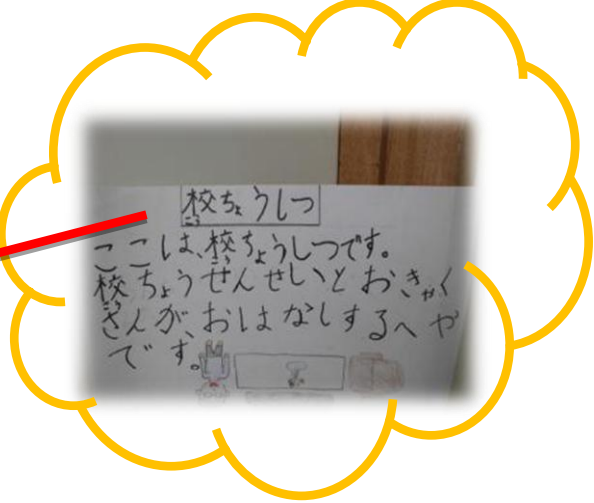 校ちょうしつ
こう
ここは、校ちょうしつです。
こう
校ちょうせんせいとおきゃく
こう
さんが、おはなしするへや
です。